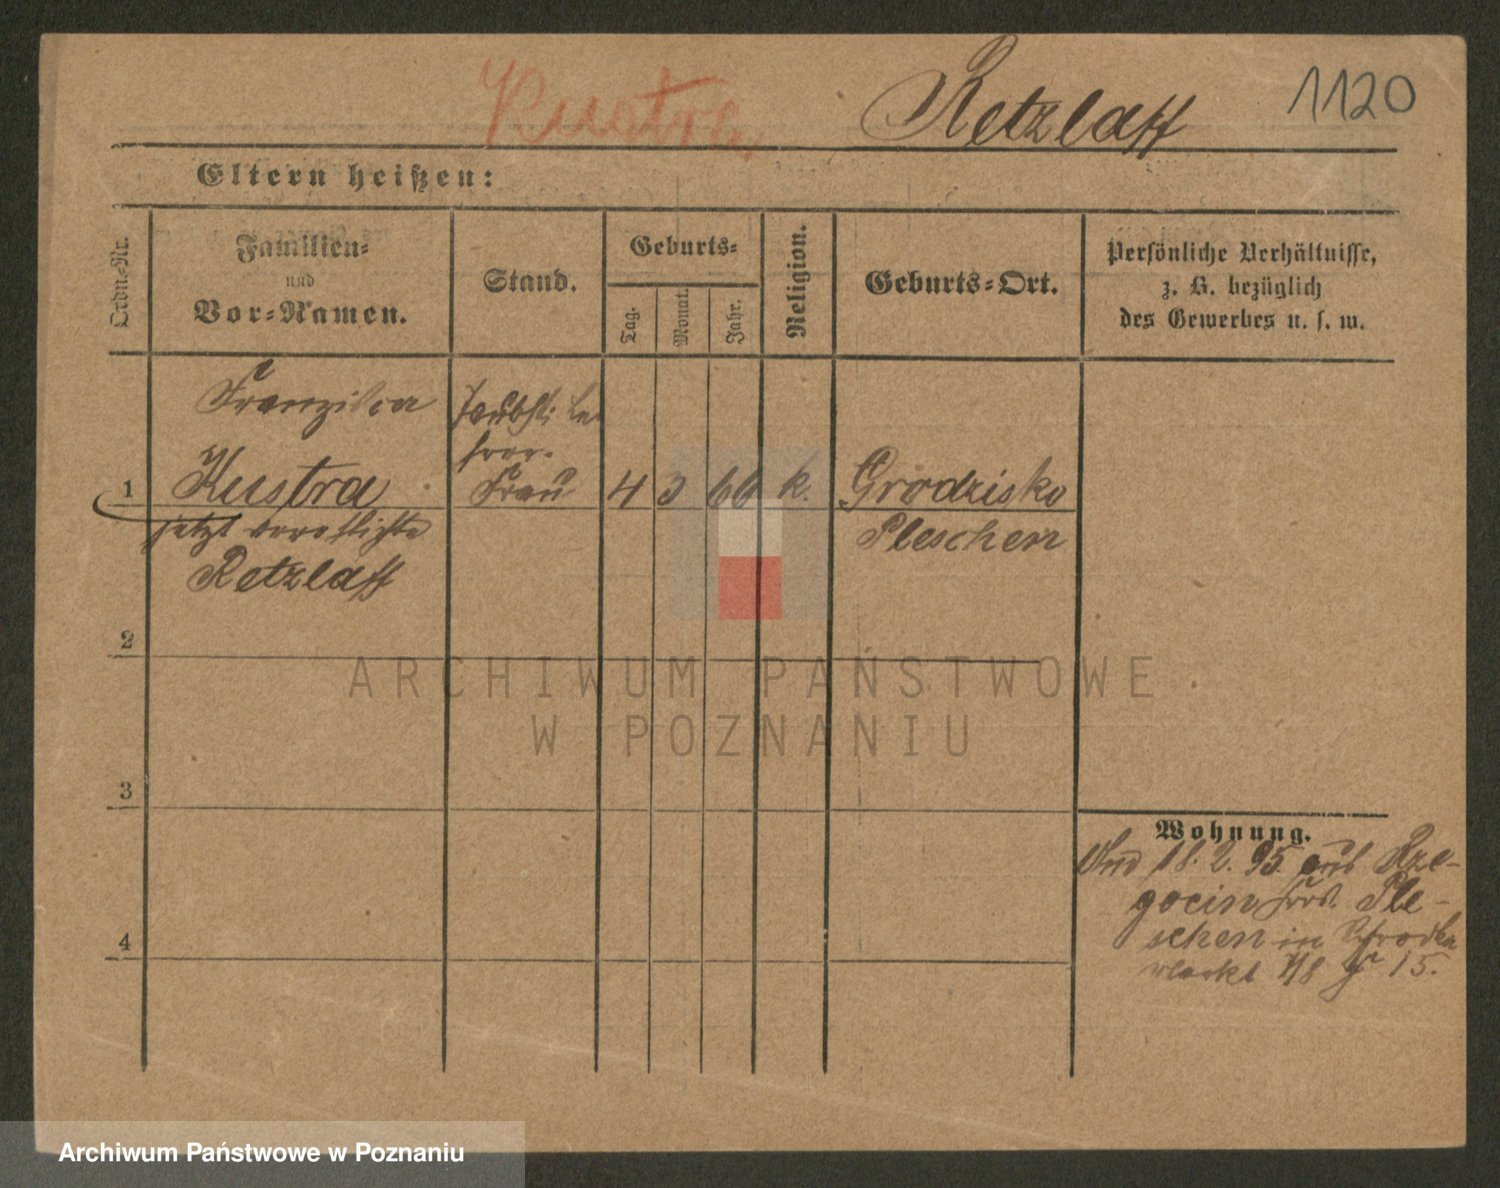 Kustra Retzlaff 1120
Eltern heißen:
Ordn.-Nr.
Familien-
und
Vor-Namen.
Stand.
Geburts-
Tag.
Monat.
Jahr.
Religion.
Geburts-Ort.
Persönliche Verhältnisse,
z. B. bezüglich
des Gewerbes u. s. w.
Franziska
Kustra
jetzt verehelichte
Retzlaff
Frau
1
4 3 66 k. Grodzisko
Pleschen
2
3
4
Wohnung.
18. 2. 95 aus Rze-
gocin Ple-
schen in Schrodka
markt 7/8 15.
ARCHIWUM PAŃSTWOWE
W POZNANIU
Archiwum Państwowe w Poznaniu